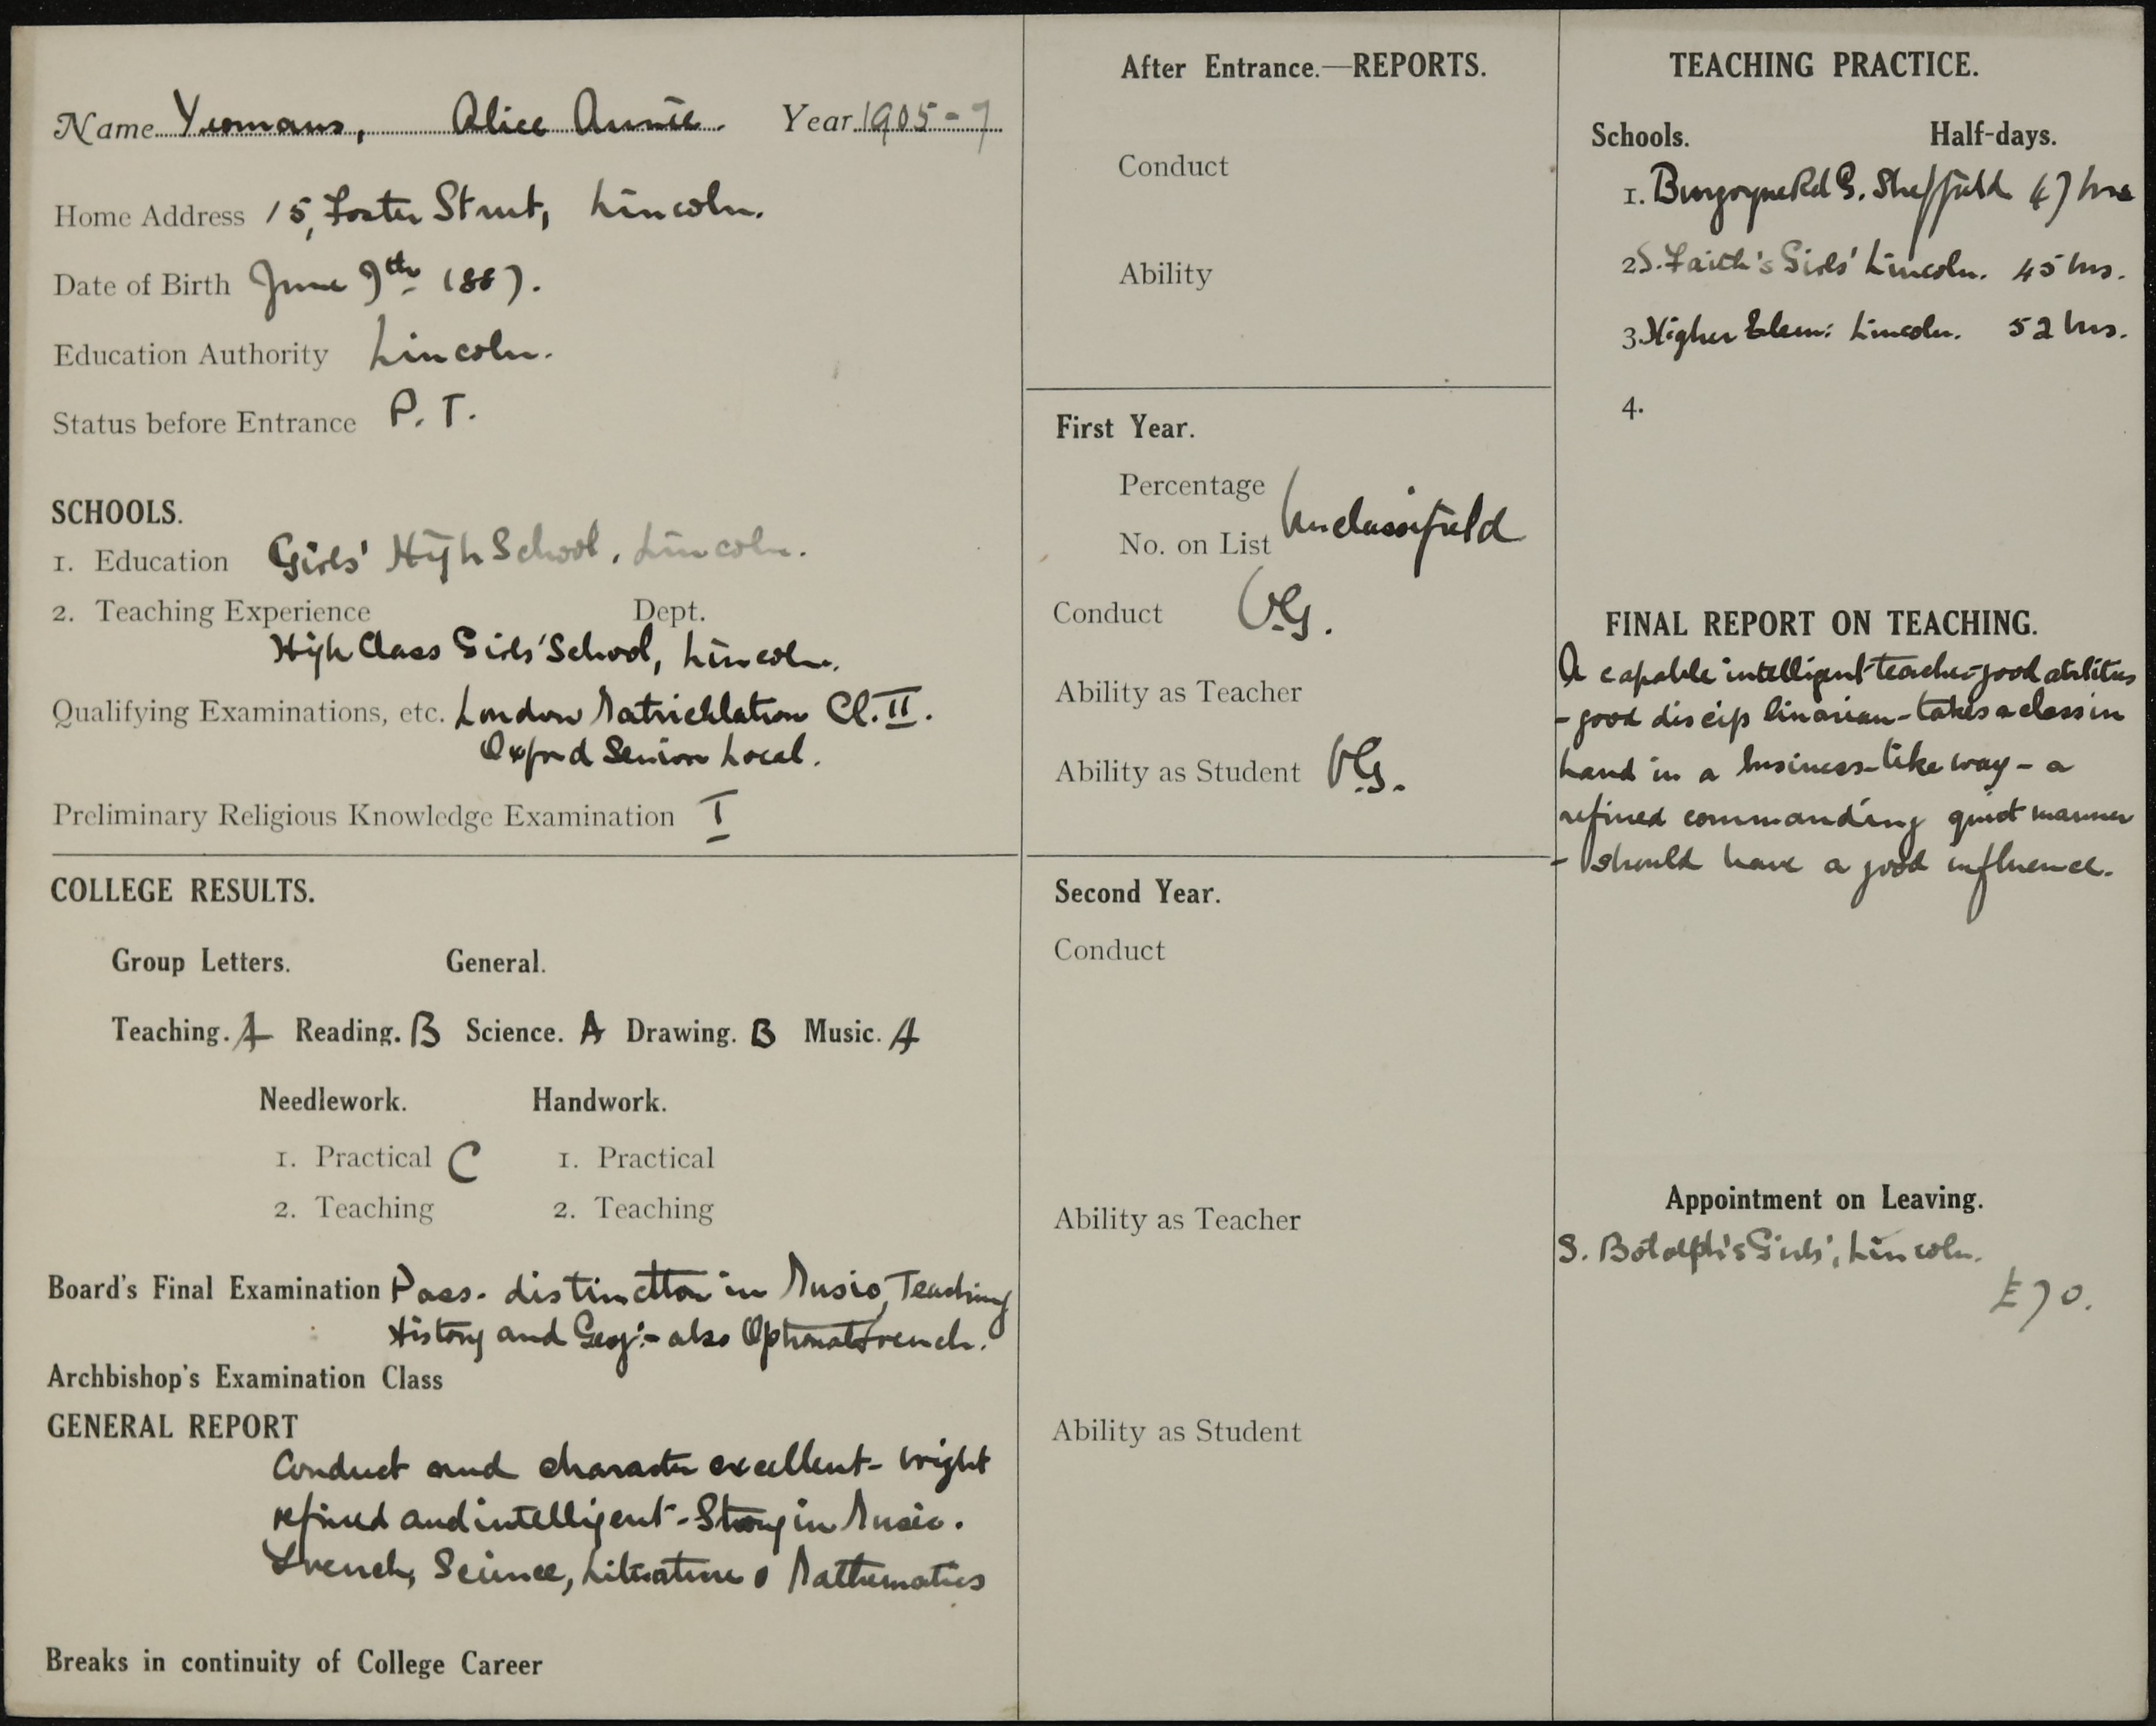 Name Yeomans, Alice Annie. Year 1905-7
Home Address 15, Foster Street, Lincoln.
Date of Birth June 7th 1887.
Education Authority Lincoln.
Status before Entrance P. T.
SCHOOLS.
1. Education Girls' High School, Lincoln.
2. Teaching Experience Dept.
High Class Girls' School, Lincoln.
Qualifying Examinations, etc. London Matriculation Cl. II.
Oxford Senior Local.
Preliminary Religious Knowledge Examination I
COLLEGE RESULTS.
Group Letters. General.
Teaching. A Reading. B Science. A Drawing. B Music. A
Needlework. Handwork.
1. Practical C 1. Practical
2. Teaching 2. Teaching
Board's Final Examination Pass - distinction in Music, Teaching
History and Geog: - also Optional French.
Archbishop's Examination Class
GENERAL REPORT
Conduct and character excellent - bright
refined and intelligent - Strong in Music.
French, Science, Literature & Mathematics
Breaks in continuity of College Career
After Entrance.—REPORTS.
Conduct
Ability
First Year.
Percentage
Unclassified
No. on List
Conduct V.G.
Ability as Teacher
Ability as Student V.G.
Second Year.
Conduct
Ability as Teacher
Ability as Student
TEACHING PRACTICE.
Schools. Half-days.
1. Burgoyne Rd G. Sheffield 47 hrs
2 S. Faith's Girls' Lincoln. 45 hrs.
3. Higher Elem: Lincoln. 52 hrs.
4.
FINAL REPORT ON TEACHING.
A capable intelligent teacher - good abilities
- good disciplinarian - takes a class in
hand in a business-like way - a
refined commanding quiet manner
- should have a good influence.
Appointment on Leaving.
S. Botolph's Girls', Lincoln.
£70.